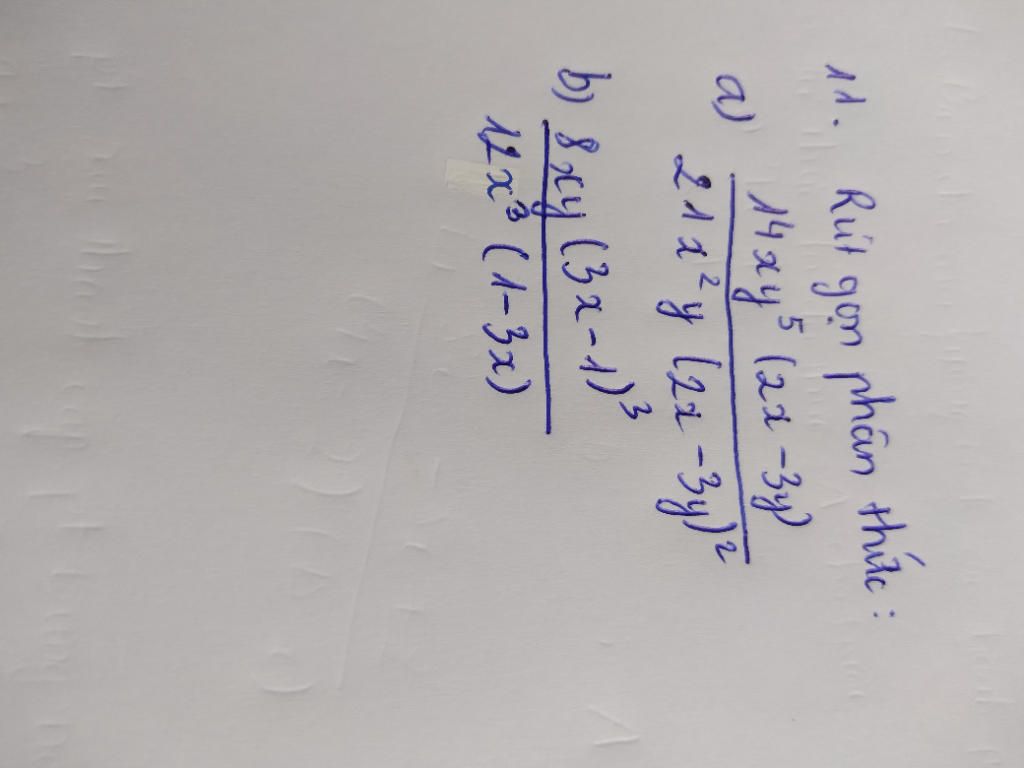 11. Rút gọn phân thức:
a) 14xy⁵(2x-3y)
21x²y(2x-3y)²
b) 8xy(3x-1)³
12x³(1-3x)